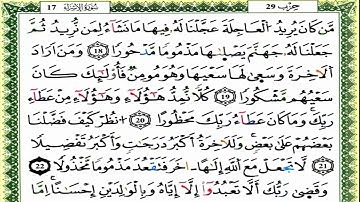 حزب 29 سورة الإسراء 17
مَّن كَانَ يُرِيدُ الْعَاجِلَةَ عَجَّلْنَا لَهُ فِيهَا مَا نَشَاءُ لِمَن نُّرِيدُ ثُمَّ
جَعَلْنَا لَهُ جَهَنَّمَ يَصْلَاهَا مَذْمُومًا مَّدْحُورًا 18 وَمَنْ أَرَادَ
الْآخِرَةَ وَسَعَىٰ لَهَا سَعْيَهَا وَهُوَ مُومِنٌ فَأُولَٰئِكَ كَانَ
سَعْيُهُم مَّشْكُورًا 19 كُلًّا نُّمِدُّ هَٰؤُلَاءِ وَهَٰؤُلَاءِ مِنْ عَطَاءِ
رَبِّكَ وَمَا كَانَ عَطَاءُ رَبِّكَ مَحْظُورًا 20 انظُرْ كَيْفَ فَضَّلْنَا
بَعْضَهُمْ عَلَىٰ بَعْضٍ وَلَلْآخِرَةُ أَكْبَرُ دَرَجَاتٍ وَأَكْبَرُ تَفْضِيلًا
21 لَّا تَجْعَلْ مَعَ اللَّهِ إِلَٰهًا آخَرَ فَتَقْعُدَ مَذْمُومًا مَّخْذُولًا 22
وَقَضَىٰ رَبُّكَ أَلَّا تَعْبُدُوا إِلَّا إِيَّاهُ وَبِالْوَالِدَيْنِ إِحْسَانًا إِمَّا